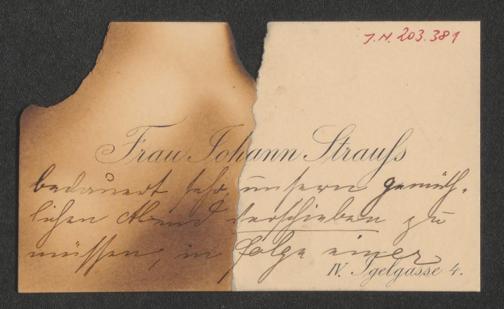 J.N. 203.381
Frau Johann Strauß
bedauert sehr unsern gemüth-
lichen Abend verschieben zu
müssen, in folge einer
IV. Igelgasse 4.